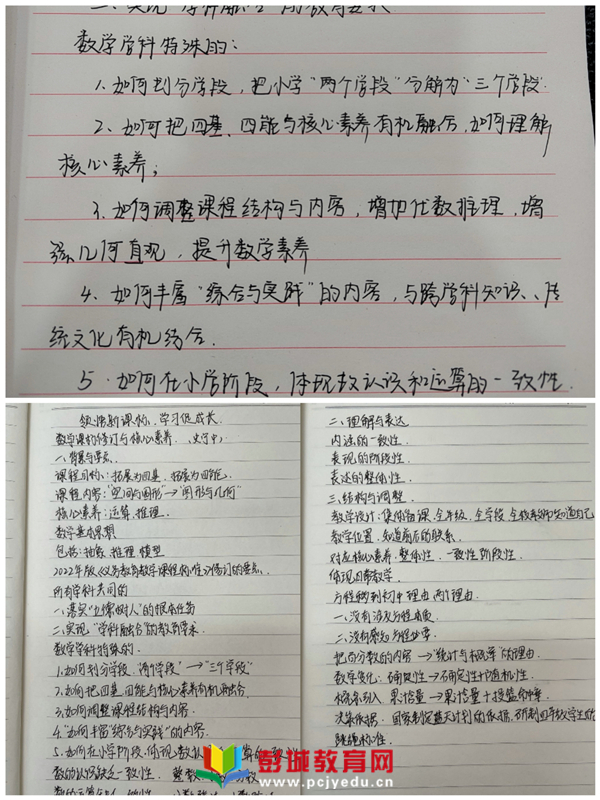 二、实现“学科融合”的教育要求
数学学科特殊的：
1、如何划分学段，把小学“两个学段”分解为“三个学段”
2、如何把四基、四能与核心素养有机融合，如何理解
核心素养；
3、如何调整课程结构与内容，增加代数推理，增
强几何直观，提升数学素养
4、如何丰富“综合与实践”的内容，与跨学科知识、传
统文化有机结合.
5、如何在小学阶段，体现数认识和运算的一致性.
领悟新课标，学习促成长
数学课标修订与核心素养.（史宁中）
一、背景与要点
课程目标：拓展为四基，拓展为四能.
课程内容：“空间与图形→“图形与几何”
核心素养：运算、推理.
数学基本思想
包括：抽象、推理、模型
2022年版《义务教育数学课程标准》修订的要点.
所有学科共同的
一、落实“立德树人”的根本任务
二、实现“学科融合”的教育要求.
数学学科特殊的.
1.如何划分学段，“两个学段”→“三个学段”
2.如何把四基、四能与核心素养有机融合.
3.如何调整课程结构与内容.
4.如何丰富“综合与实践”的内容.
5.如何在小学阶段，体现数认
数的认识缺乏一致性. 整数
二、理解与表达
内涵的一致性.
表现的阶段性.
表述的整体性.
三、结构与调整.
教学设计：集体备课，全年级、全学段、全校教师知道自己
教学位置，知道前后的联系.
对应核心素养：整体性、一致性、阶段性.
体现日常教学
方程移到初中理由，两个理由.
一、没有涉及方程本质
二、没有感知方程必要.
把百分数的内容→“统计与概率”的理由.
数学变化：确定性→确定性+随机性.
决策依据：国家制定蓝天计划的依据，研制四年级学生
跳绳标准.
彭城教育网
www.pcjyedu.cn